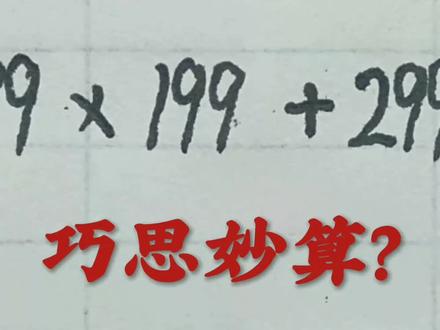 99 × 199 + 299
巧思妙算?